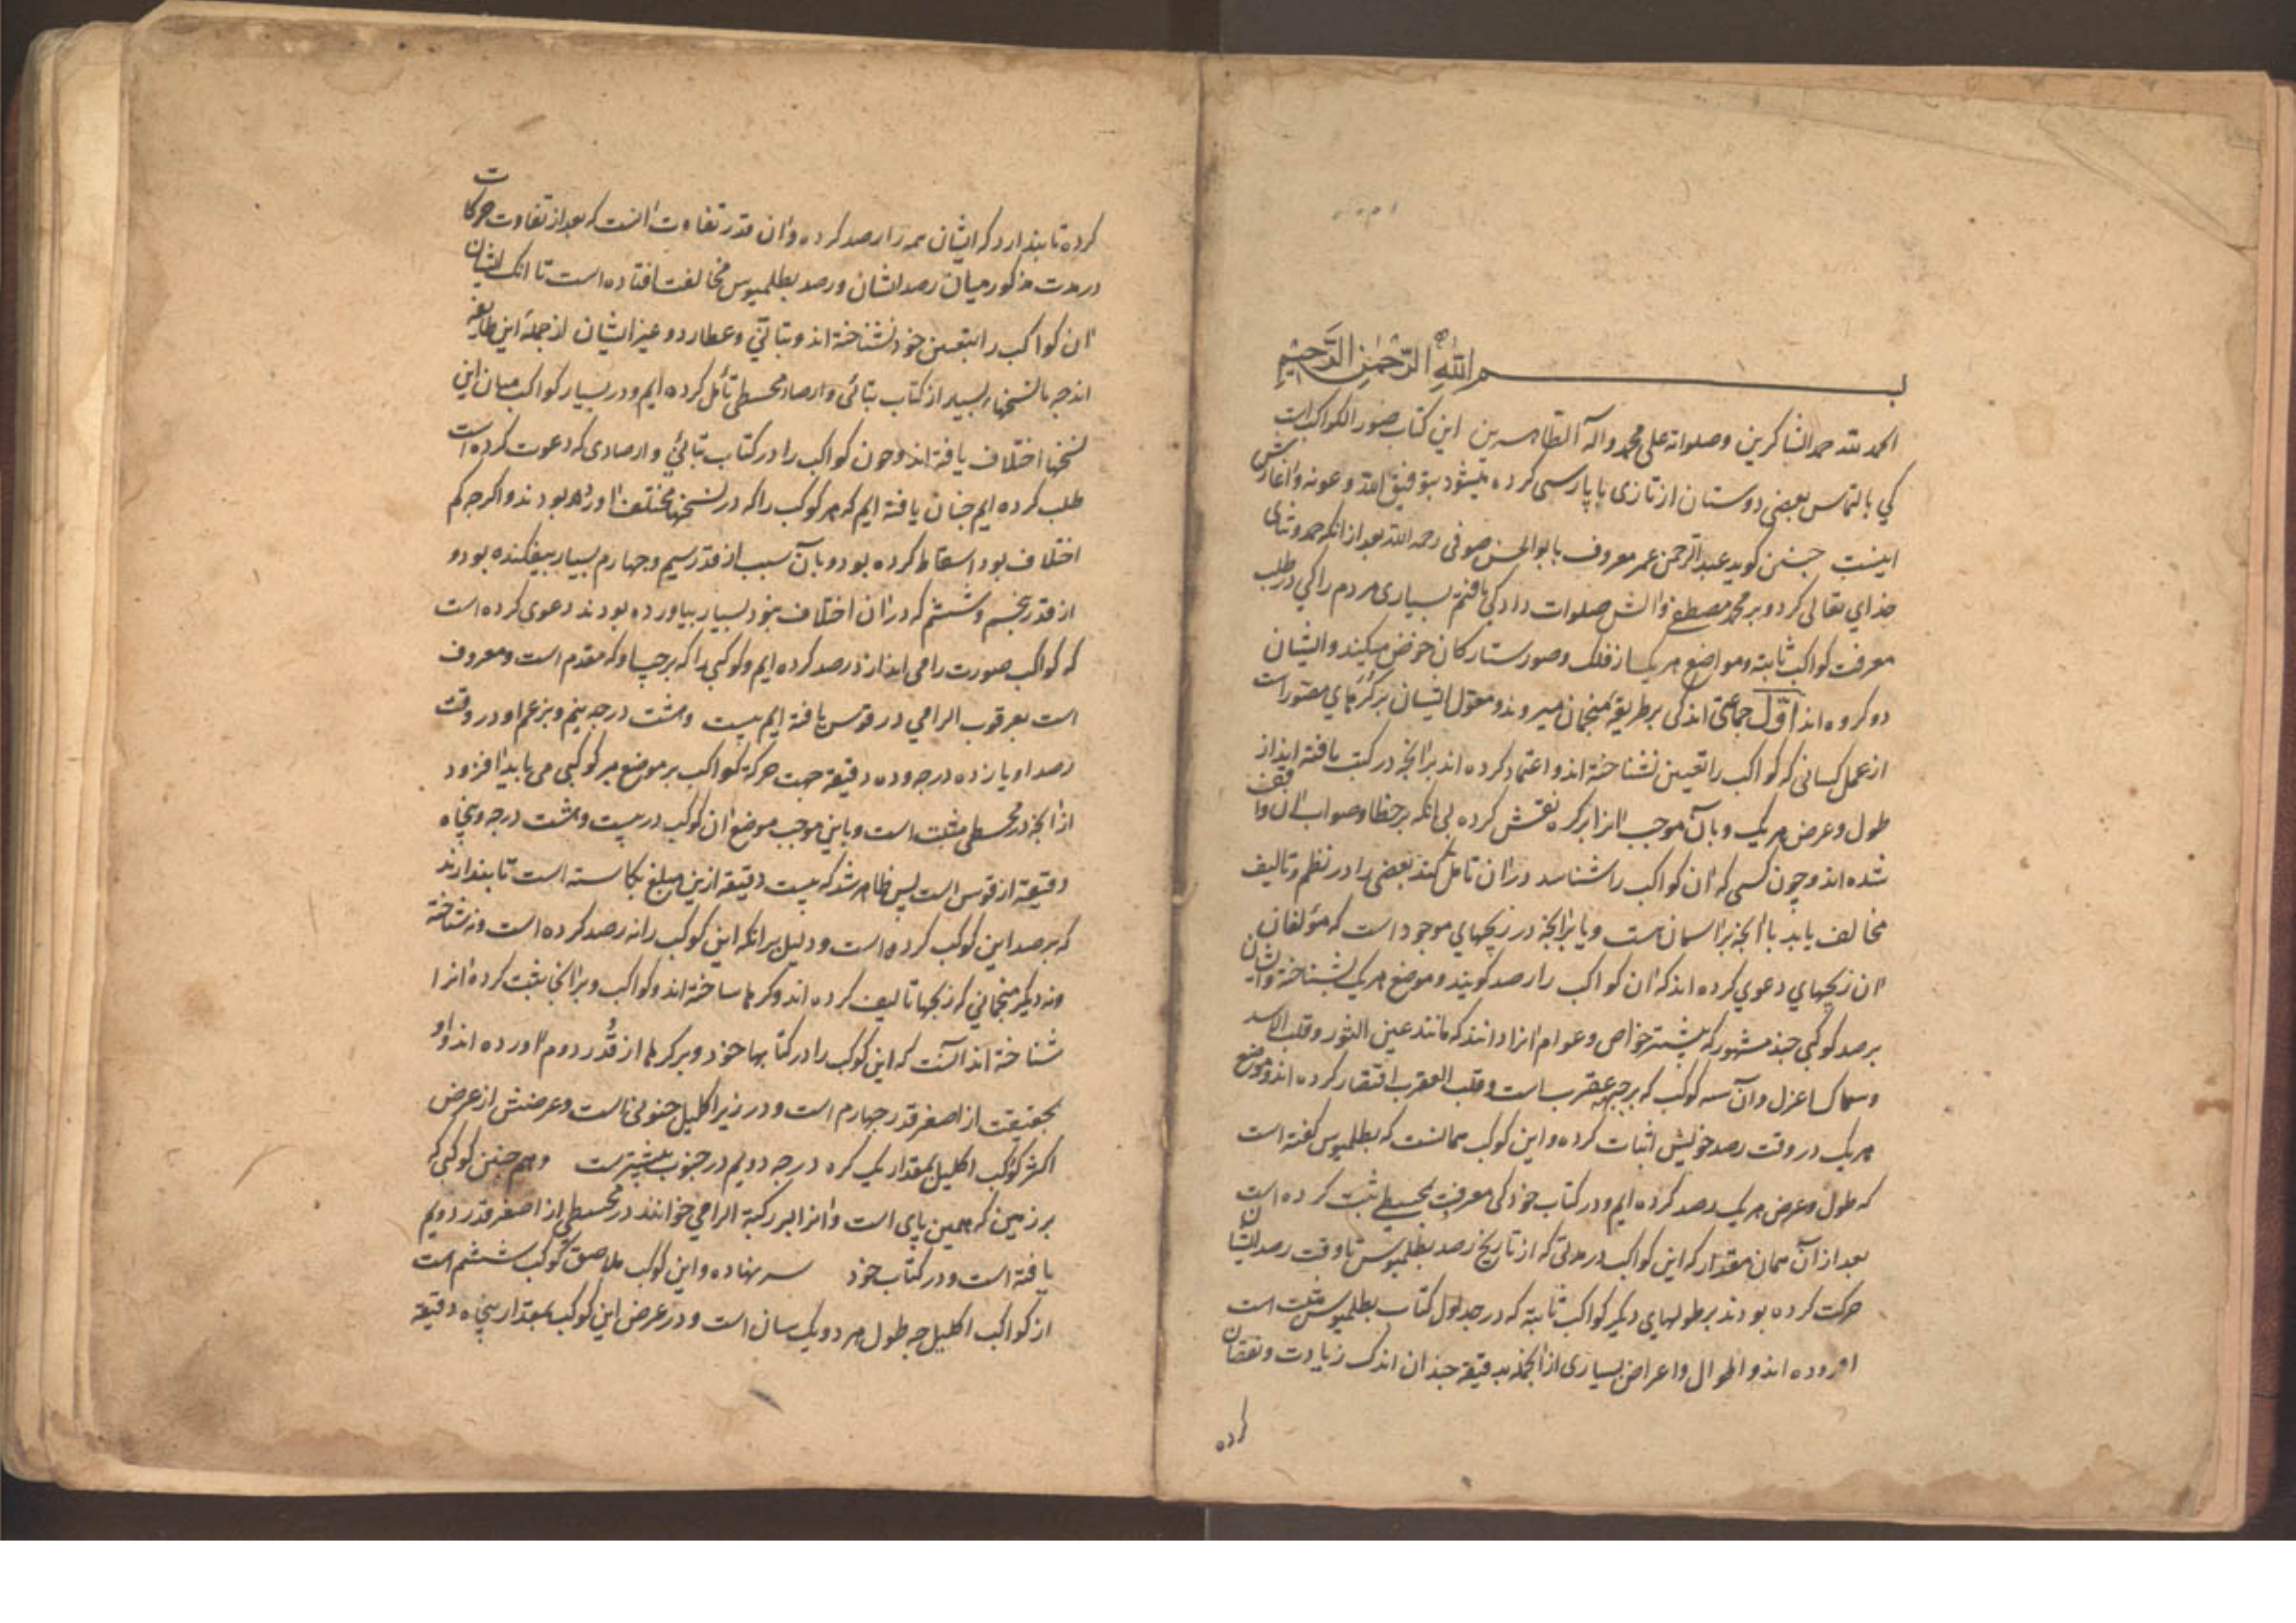 بسم الله الرحمن الرحیم
الحمد لله حمد الشاکرین وصلواته علی محمد واله الطاهرین این کتاب صور الکواکب است
کی بالتماس بعضی دوستان از تازی با پارسی کرده میشود بتوفیق الله وعونه واغازش
اینست جنین کوید عبد الرحمن عمر معروف بابو الحسن صوفی رحمه الله بعد از انکه حمد وثنای
خدای تعالی کرد وبر محمد مصطفی والش صلوات داد کی یافتم بسیاری مردم را کی در طلب
معرفت کواکب ثابته ومواضع هریک از فلک وصور ستارکان خوض میکنند وایشان
دو کروه اند اول جماعتی اند کی بر طریقه منجمان میروند ومعول ایشان بر کرهای مصور است
از عمل کسانی که کواکب را بتعیین نشناخته اند واعتماد کرده اند بر انجه در کتب یافته اند از
طول وعرض هریک وبان موجب انرا بر کره نقش کرده بی انکه بر خطا وصواب ان واقف
شده اند وچون کسی که ان کواکب را شناسد در ان تامل کند بعضی را در نظم وتالیف
مخالف یابد با انجه بر اسمان هست ویا بر انجه در زیجهای موجود است که مؤلفان
ان زیجهای دعوی کرده اند که ان کواکب را رصد کویند وموضع هریک بشناخته وایشان
برصد کوکبی جند مشهور که بیشتر خواص وعوام انرا دانند که مانند عین الثور وقلب الاسد
وسماک اعزل وان سه کوکب که بر جبهه عقرب است وقلب العقرب اقتصار کرده اند وموضع
هریک در وقت رصد خویش اثبات کرده واین کوکب همانست که بطلمیوس کفته است
که طول وعرض هریک رصد کرده ایم ودر کتاب خود کی معرفت بمجسطی ثبت کرده است
بعد از ان همان مقدار که این کواکب در مدتی که از تاریخ رصد بطلمیوس تا وقت رصد ایشان
حرکت کرده بودند بر طولهای دیکر کواکب ثابته که در جدول کتاب بطلمیوس مثبت است
افزوده اند واطوال واعراض بسیاری از انجمله بدقیقه جندان اندک زیادت ونقصان
کرده
کرده تا بندارد که ایشان همه را رصد کرده وان قدر تفاوت انست که بعد از تفاوت حرکات
در مدت مذکور میان رصد ایشان ورصد بطلمیوس مخالفت افتاده است تا انک ایشان
ان کواکب را بتعیین خود نشناخته اند وبتانی وعطارد وغیر ایشان از جمله این طایفه
اند جه ما نسخهاء بسیار از کتاب بتانی وارصاد مجسطی تامل کرده ایم ودر بسیار کواکب میان این
نسخها اختلاف یافته اند وجون کواکب را در کتاب بتانی وارصادی که دعوت کرده است
طلب کرده ایم جنان یافته ایم که هر کوکب را که در نسخهاء مختلف اورده بودند واکرجه کم
اختلاف بود اسقاط کرده بود وبان سبب از قدر سیم وجهارم بسیار بیفکنده بود و
از قدر بنجم وششم که در ان اختلاف نبود بسیار بیاورده بودند دعوی کرده است
که کواکب صورت رامی انداز رصد کرده ایم وکوکبی را که بر جب او که مقدم است ومعروف
است بعرقوب الرامی در قوس یافته ایم بیست وهشت درجه ونیم وبزعم او در وقت
رصد او یازده درجه وده دقیقه جهت حرکة کواکب بر موضع هر کوکبی می باید افزود
از انجه در مجسطی مثبت است وباین موجب موضع ان کوکب در بیست وهشت درجه وبنجاه
دقیقه از قوس است بس ظاهر شد که بیست دقیقه ازین مبلغ بکاسته است تا بندارند
که برصد این کوکب کرده است ودلیل بر انکه این کوکب را نه رصد کرده است ونه شناخته
ونه دیکر منجمانی که زیجها تالیف کرده اند وکرها ساخته اند وکواکب را بر انجا ثبت کرده انرا
شناخته اند انست که این کوکب را در کتابها خود وبر کرها از قدر دوم اورده اند واو
بحقیقت از اصغر قدر جهارم است ودر زیر اکلیل جنوبی است وعرضش از عرض
اکثر کوکب اکلیل بمقدار یک کره درجه دو نیم در جنوب بیشتر است وهم جنین کوکبی که
بر زمین که همین بای است وانرا بر رکبة الرامی خوانند در مجسطی از اصغر قدر دویم
یافته است ودر کتاب خود سه نهاده واین کوکب ملاصق کوکب ششم است
از کواکب اکلیل جه طول هر دو یکسان است ودر عرض این کوکب بمقدار بنجاه دقیقه